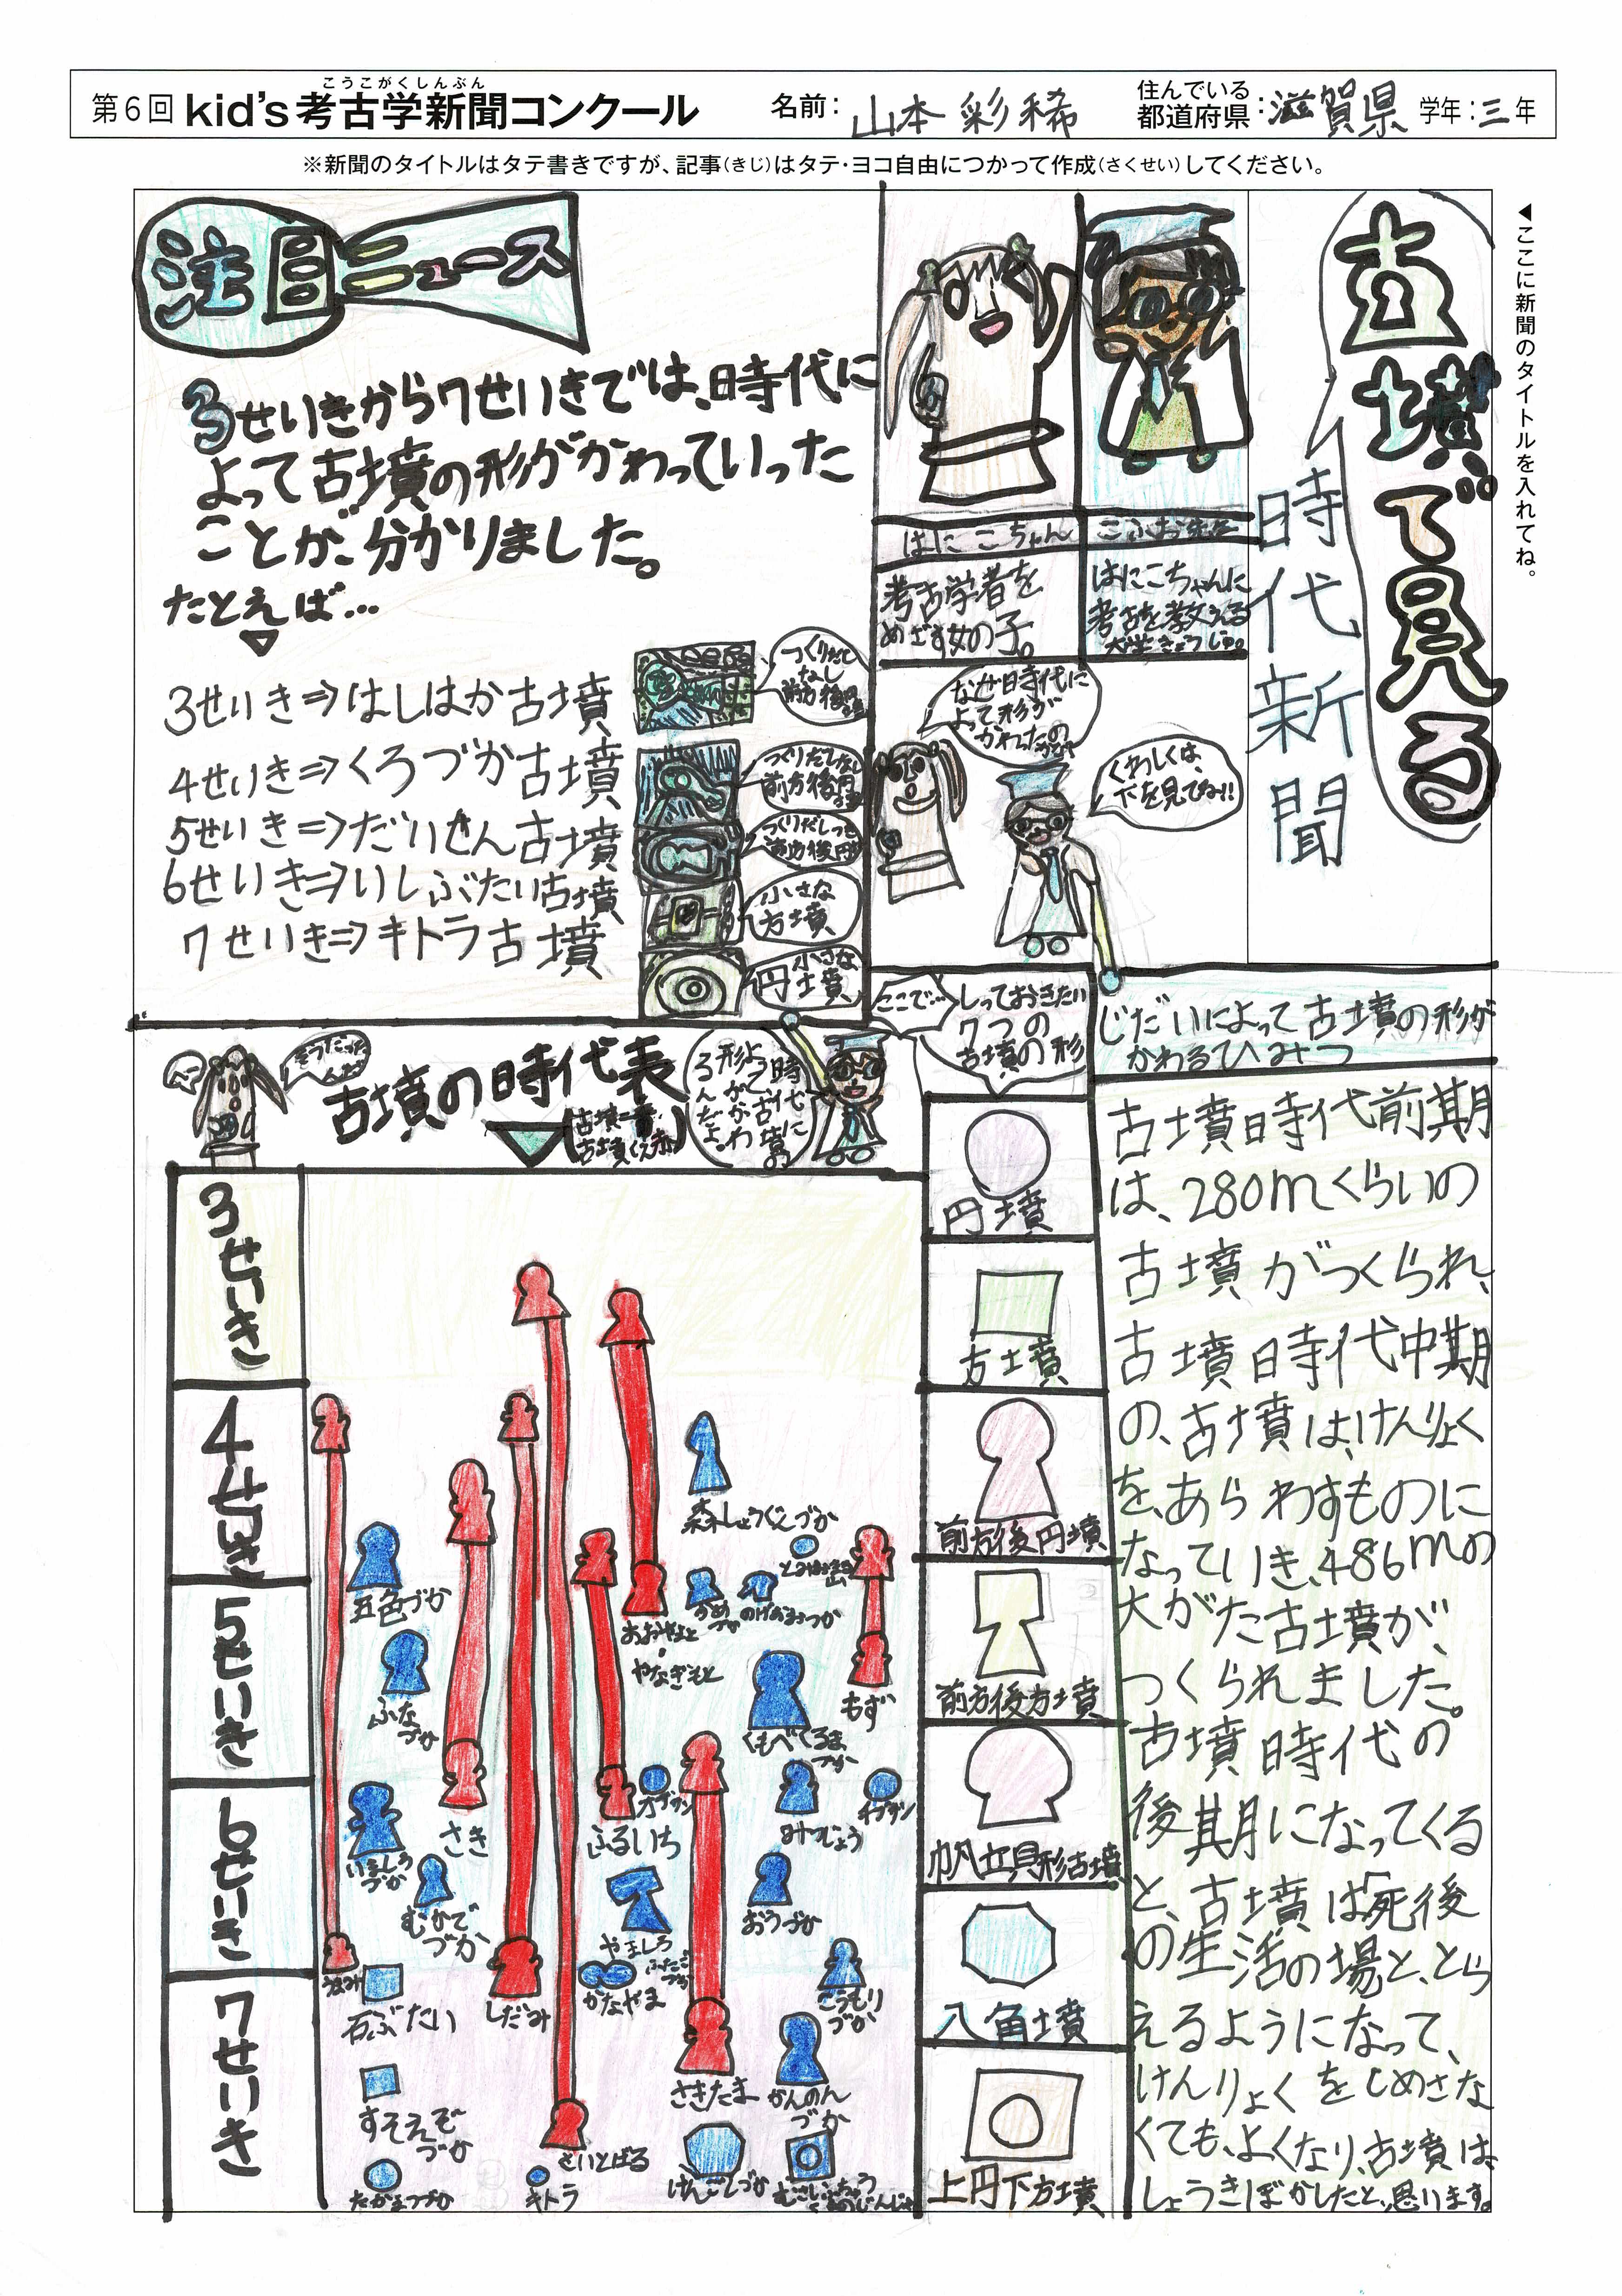 こうこがくしんぶん
第6回 kid's考古学新聞コンクール
名前：山本彩稀
住んでいる
都道府県：滋賀県
学年：三年
※新聞のタイトルはタテ書きですが、記事（きじ）はタテ・ヨコ自由につかって作成（さくせい）してください。
◀ここに新聞のタイトルを入れてね。
古墳で見る
時代新聞
こふお先生
はにこちゃんに
考古を教える
大学きょうじゅ。
はにこちゃん
考古学者を
めざす女の子。
なぜ時代に
よって形が
かわったの
くわしくは、
下を見てね!!
注目ニュース
3せいきから7せいきでは、時代に
よって古墳の形がかわっていった
ことが、分かりました。
たとえば…
3せいき⇒はしはか古墳
つくりだし
なし
前方後円墳
4せいき⇒くろづか古墳
つくりだしなし
前方後円墳
5せいき⇒だいせん古墳
つくりだしつき
前方後円墳
6せいき⇒いしぶたい古墳
小さな
方墳
7せいき⇒キトラ古墳
小さな
円墳
じだいによって古墳の形が
かわるひみつ
古墳時代前期
は、280mくらいの
古墳がつくられ、
古墳時代中期
の、古墳は、けんりょく
を、あらわすものに
なっていき、486mの
大がた古墳が、
つくられました。
古墳時代の
後期になってくる
と、古墳は「死後
の生活の場と、とら
えるようになって、
けんりょくをしめさな
くても、よくなり、古墳は、
しょうきぼかしたと、思います。
ここで…
しっておきたい
7つの
古墳の形
円墳
方墳
前方後円墳
前方後方墳
帆立貝形古墳
八角墳
上円下方墳
そうだった
んだ
古墳の時代表
時代に
よって、古墳の
形がかわ
るんだよ。
3せいき
4せいき
5せいき
6せいき
7せいき
森しょうぐんづか
五色づか
ふな
づか
さき
おおやまと
やなぎもと
かめ
づか
もず
くもべくるま
づか
オブサン
ふるいち
みつじょう
いましろ
づか
むかで
づか
おうづか
やましろ
ふたご
づか
かなやま
うねみ
石ぶたい
しだみ
こうもり
づか
さきたま
かんのん
づか
すそえぞ
づか
さいとばる
たかまつづか
キトラ
けんごしづか